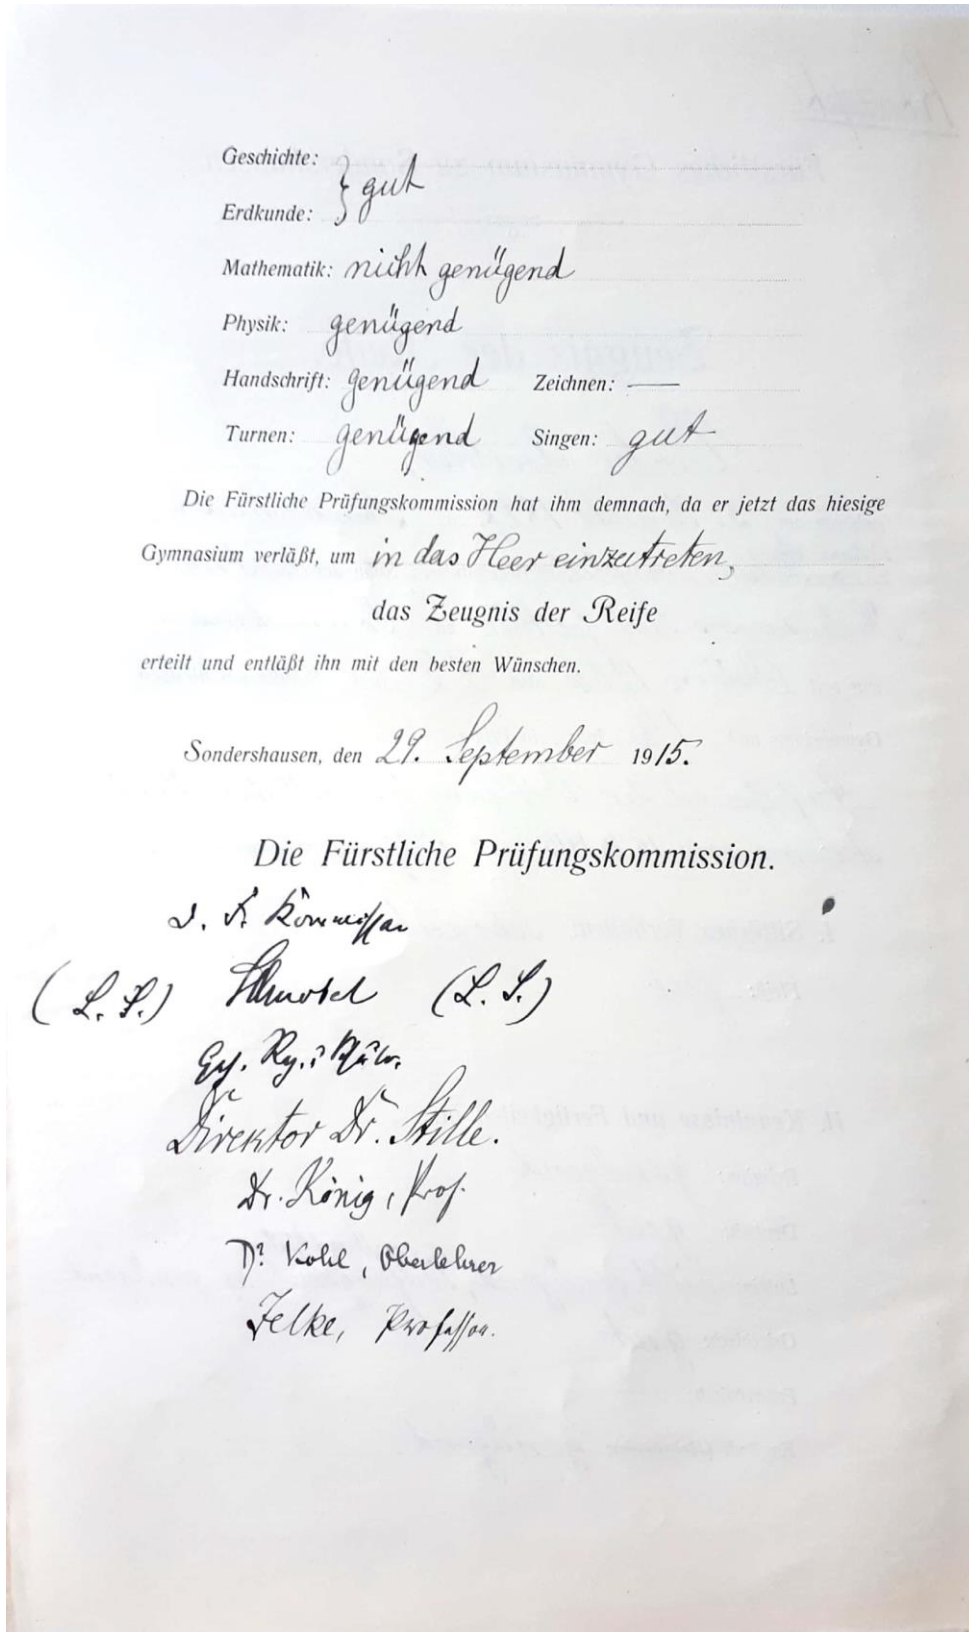 Geschichte:
} gut
Erdkunde:
Mathematik: nicht genügend
Physik: genügend
Handschrift: genügend Zeichnen: —
Turnen: genügend Singen: gut
Die Fürstliche Prüfungskommission hat ihm demnach, da er jetzt das hiesige
Gymnasium verläßt, um in das Heer einzutreten,
das Zeugnis der Reife
erteilt und entläßt ihn mit den besten Wünschen.
Sondershausen, den 29. September 1915.
Die Fürstliche Prüfungskommission.
Kommissar
(L. S.) (L. S.)
Direktor Dr. Stille.
Dr. König, Prof.
Dr. Kohl, Oberlehrer
Jelke, Professor.